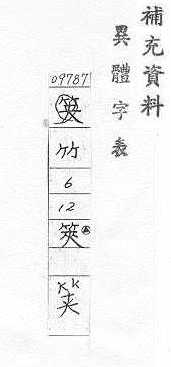 補充資料
異體字表
09787
筴
竹
6
12
筴